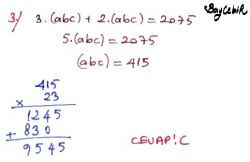 3) 3.(abc) + 2.(abc) = 2075
5.(abc) = 2075
(abc) = 415
415
x 23
1245
+ 830
9545
CEVAP:C